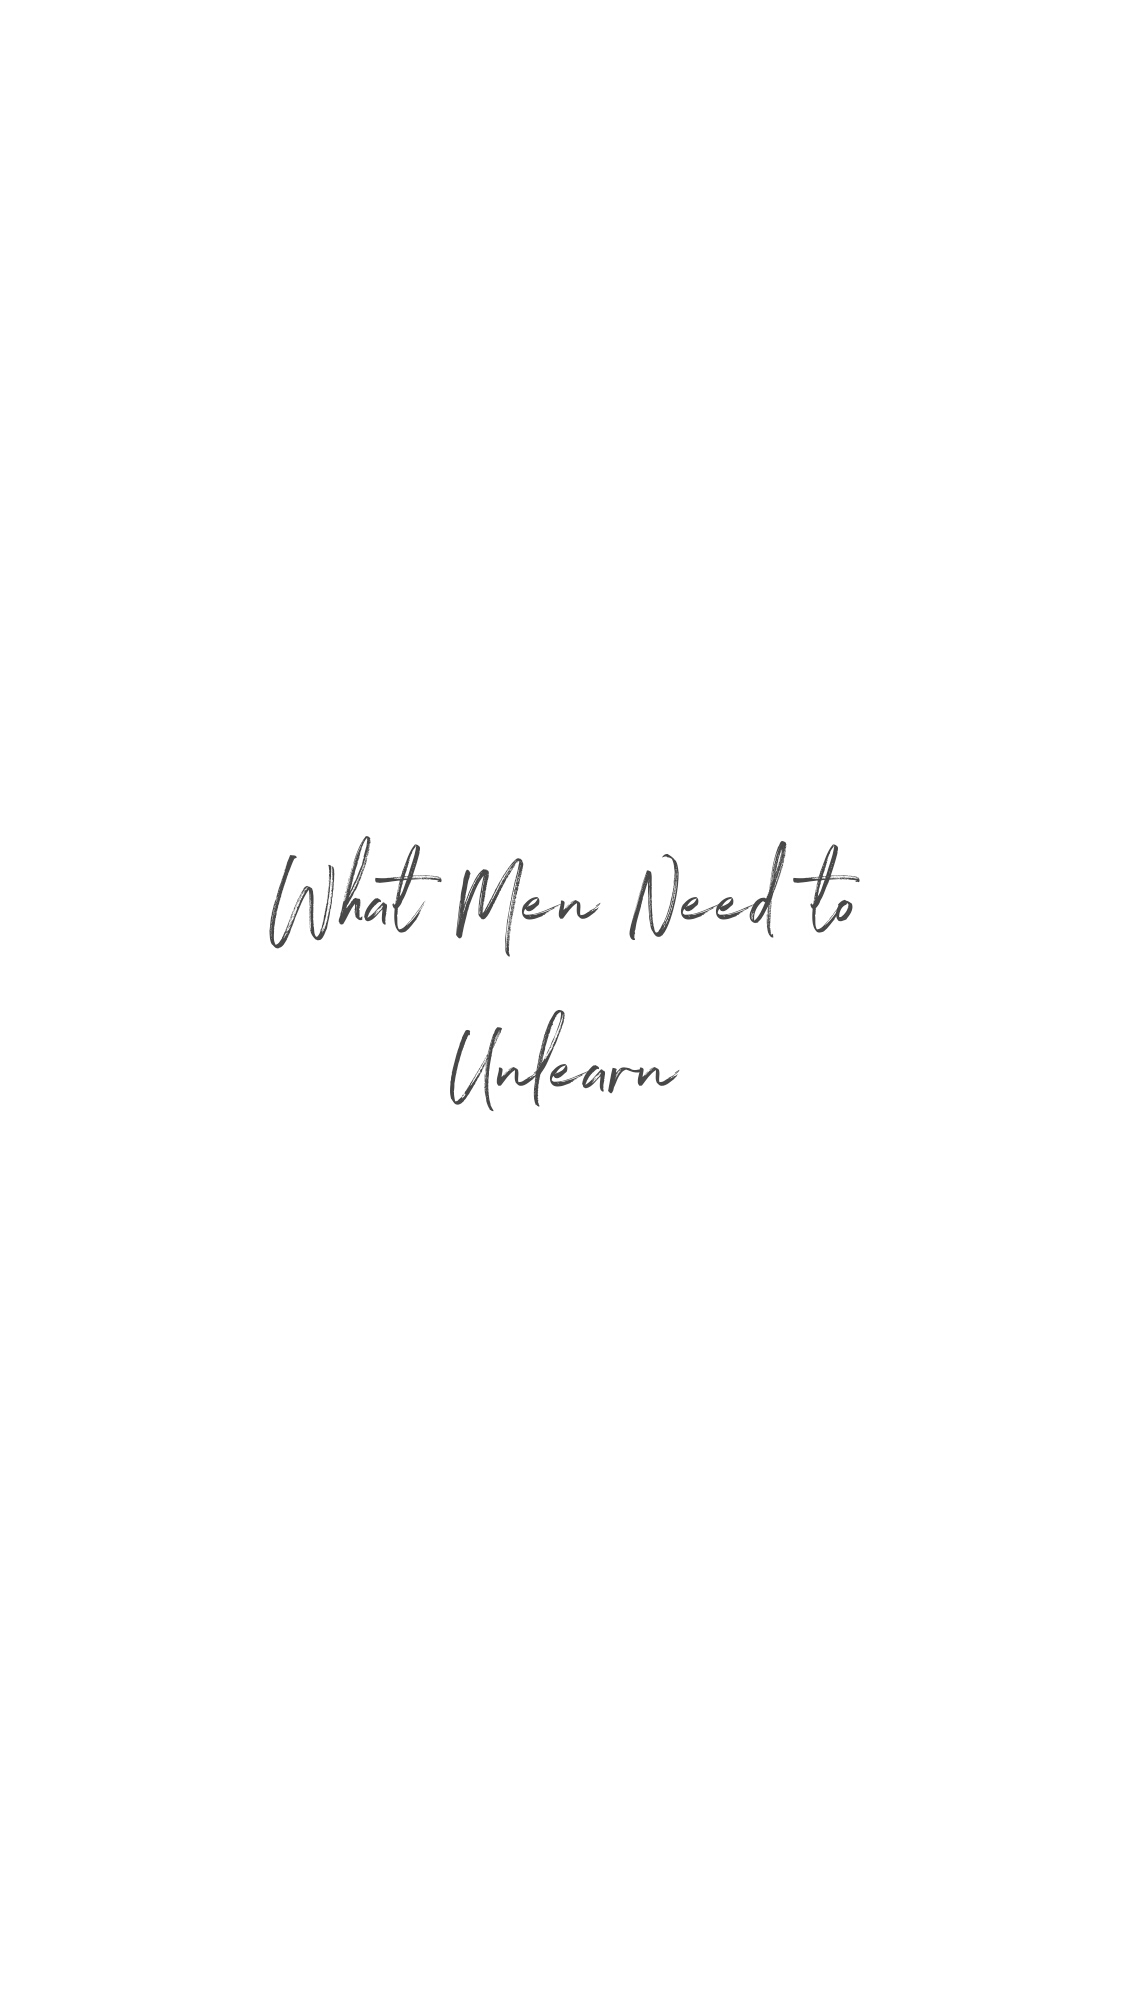 What Men Need to
Unlearn